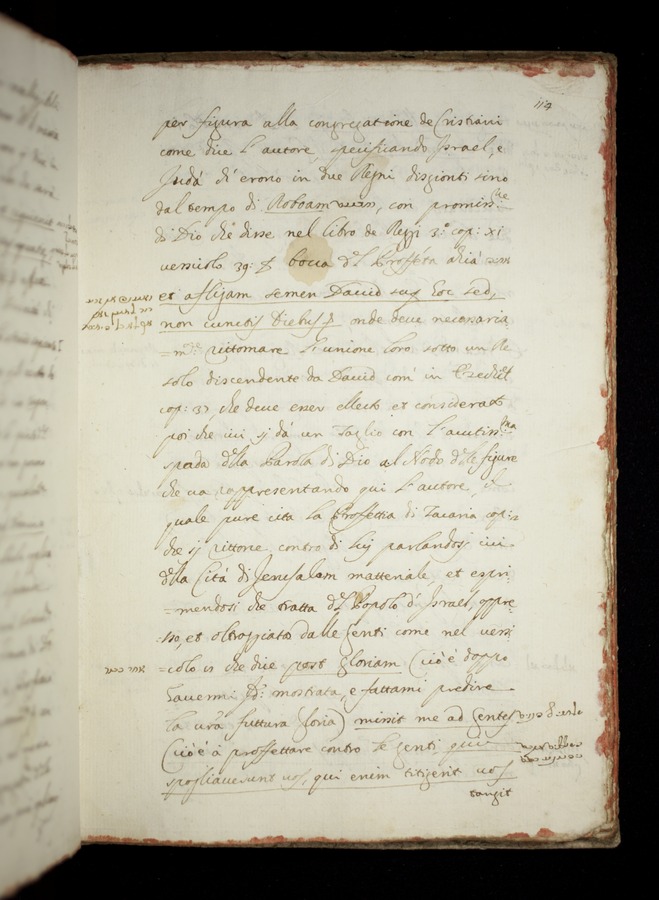 114
per figura alla congregatione de Cristiani
come dice l'autore, specificando Israel, e
Judá di erono in due Regni disgionti sino
dal tempo di Roboam, con promiss:ne
di Dio che disse nel libro de Reggi 3.º cap: xi
versicolo 39: bocca del Proffeta
et afligam semen David hoc sed,
non cunctis Diebus onde deve necessaria
=m:te rittornare l'unione loro sotto un Re
solo discendente da David com' in Ezechiel
cap: 37 che deve esser
poi che ivi si dá un taglio con l'acutiss:ma
spada della Parola di Dio al Nodo delle figure
che va rappresentando qui l'autore, il
quale pure cita la Proffettia di Zacaria cap: 2
che si rittorce contro di lui parlandosi ivi
della Cittá di Jerusalem matteriale, et espri
=mendosi che tratta del Popolo d'Israel, oppre
=so, et oltraggiato dalle genti come nel versi
=colo che dice post gloriam (cioé doppo
havermi mostrata, e fattami predire
la vrã futtura gloria) missit me ad gentes
(cioé á proffettare contro le genti que
spogliaverunt vos, qui enim titigerit vos
tangit